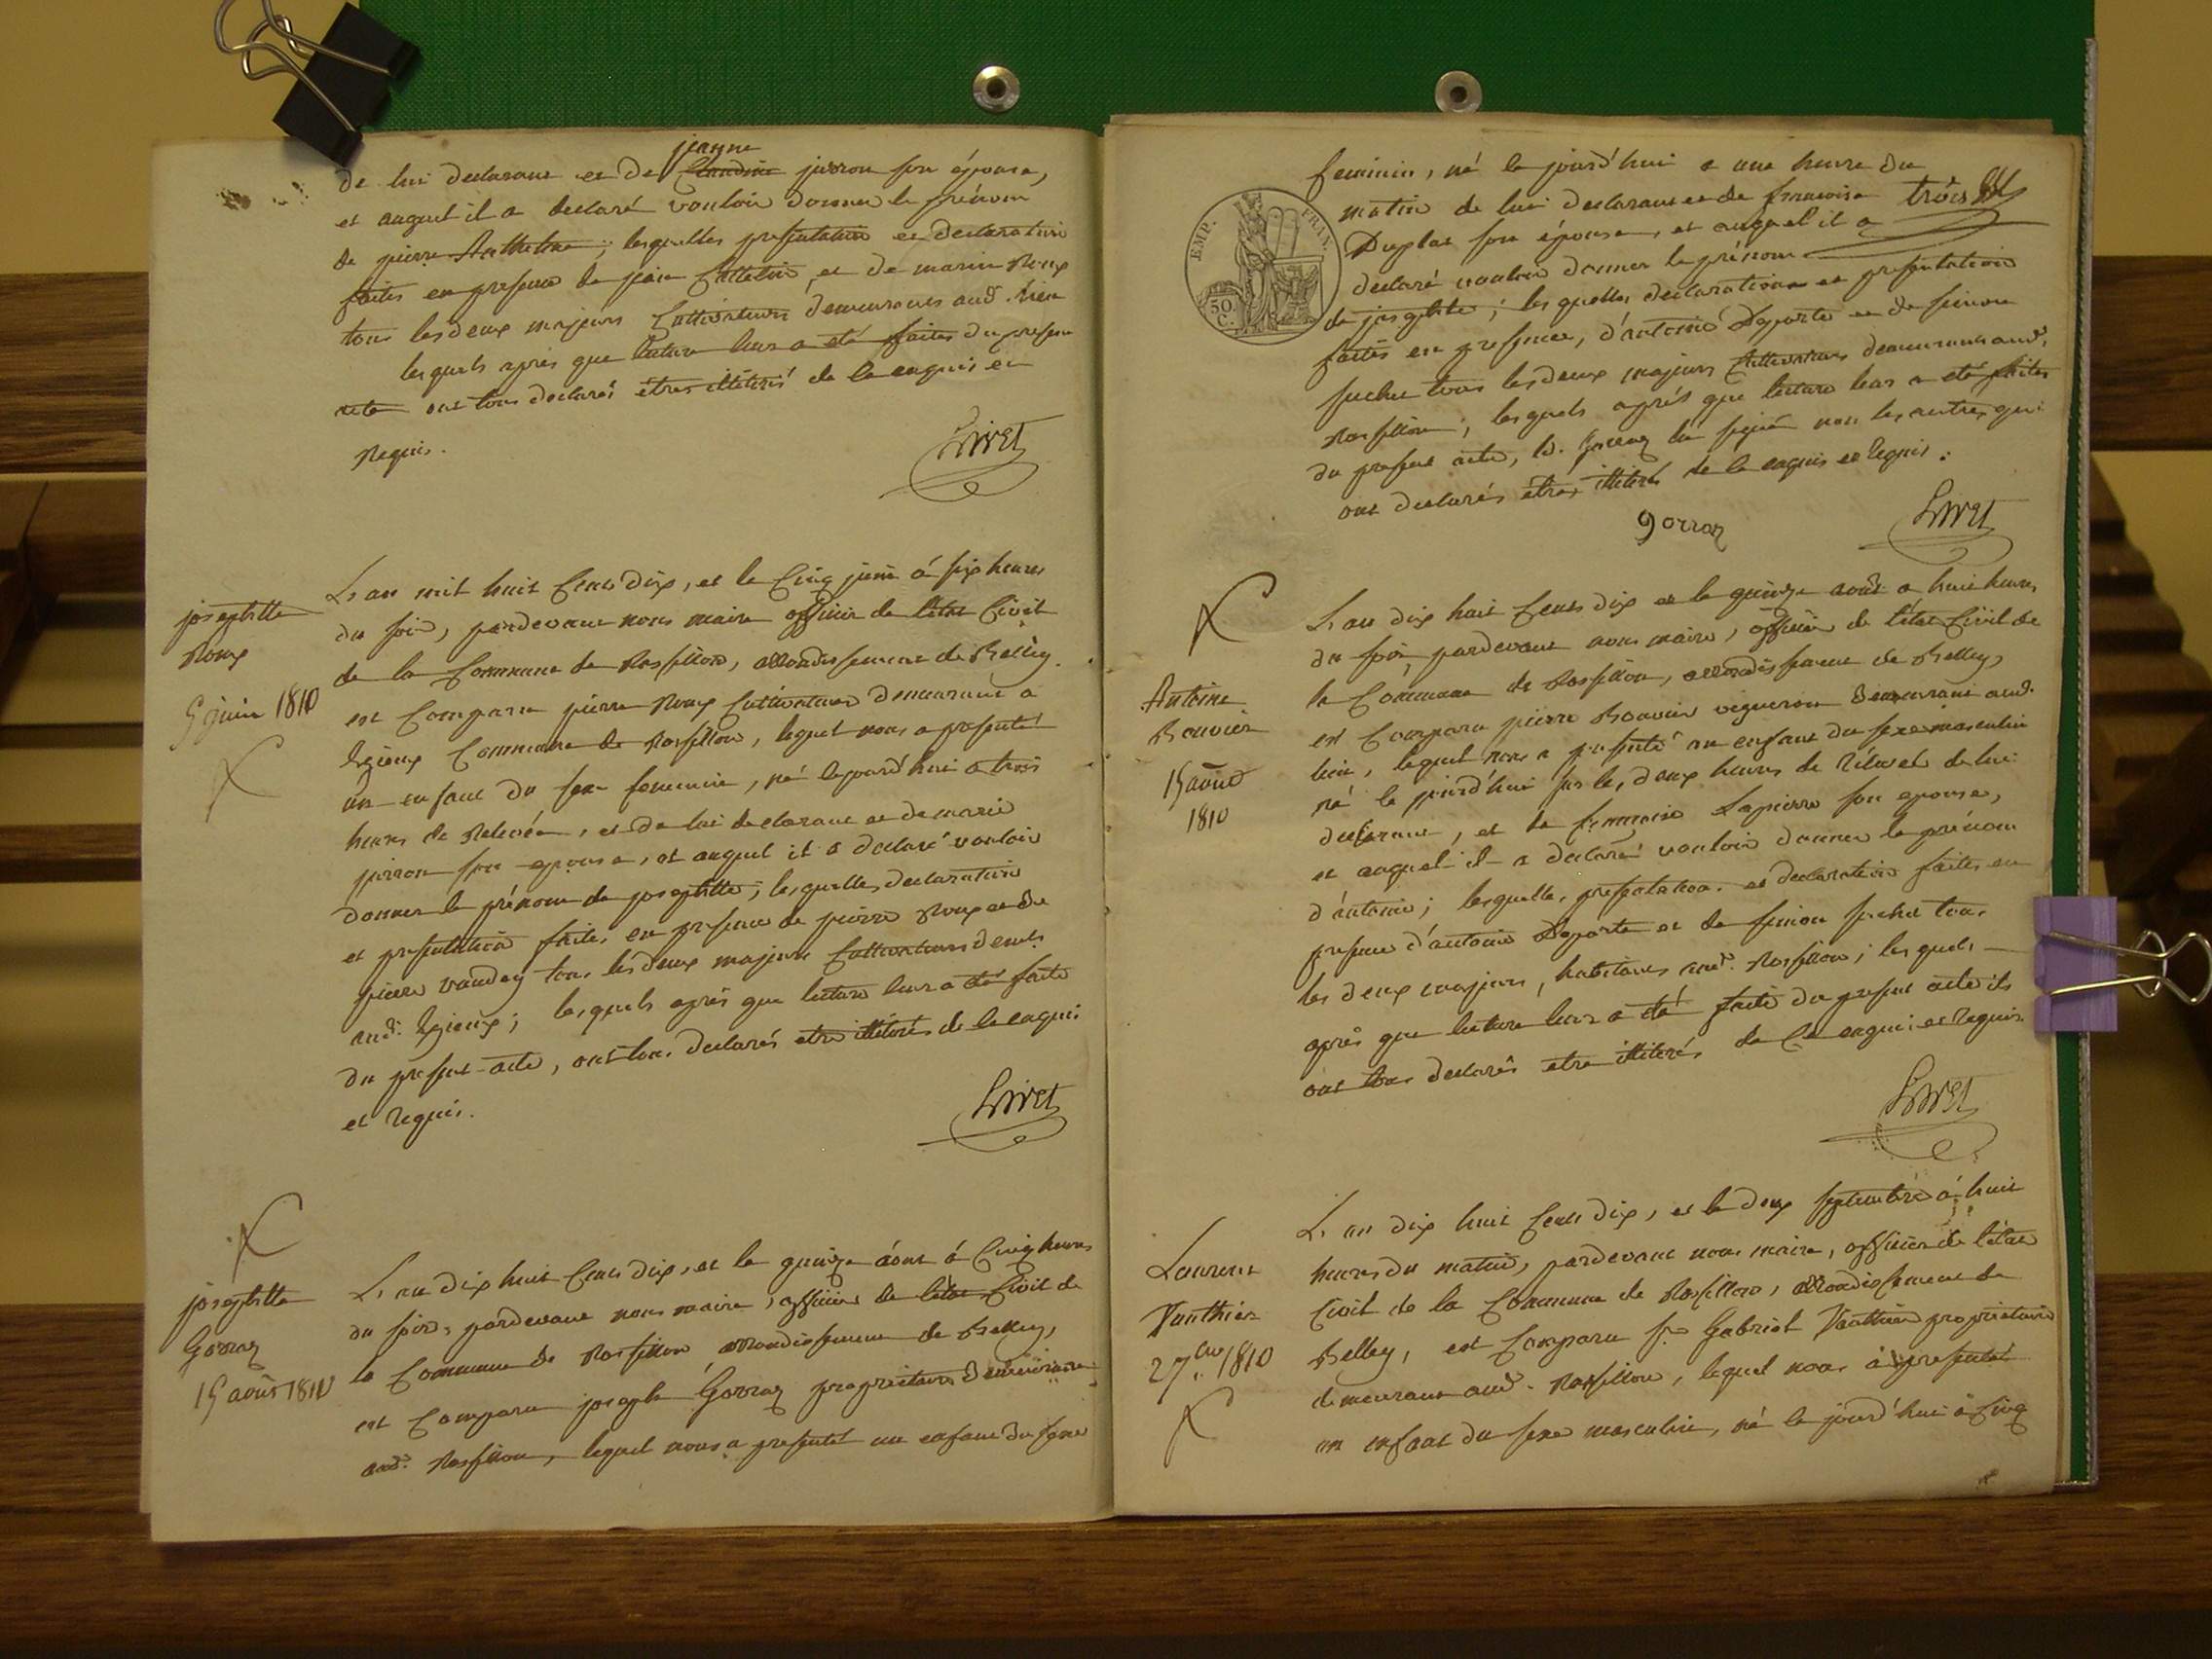 jeanne
de lui declarant et de Claudine jurron son épouse,
et auquel il a declaré vouloir donner le prénom
de pierre Anthelme; lesquelles presentation et declaration
faites en presence de jean et de marin Roux
tous les deux majeurs Cultivateurs demeurants aud. lieu
lesquels après que lecture leur a été faites du present
acte ont tous declaré êtres illitérés de le enquis et
Requis.
Livet
josephtte
Roux
5 juin 1810
L'an mil huit Cents dix, et le Cinq juin á six heures
du soir, pardevant nous maire officier de l'état Civil
de la Commune de Rossillon, arrondissement de Belley.
est Comparu pierre Roux Cultivateur demeurant a
Egieux Commune de Rossillon, lequel nous a presenté
un enfant du sexe feminin, né lejourd'hui a trois
heures de Relevée, et de lui declarant et de marie
jurron son epouse, et auquel il a declaré vouloir
donner le prénom de josephtte; lesquelles declaration
et presentation faites en presence de pierre Roux et de
pierre vaudey tous les deux majeurs Cultivateurs demts
aud. Egieux; lesquels après que lecture leur a été faite
du present acte, ont tous declarés etre illitérés de le enquis
et requis.
Livet
josephtte
Gorraz
15 août 1810
L'an dix huit Cents dix, et le quinze aôut á Cinq heures
du soir, pardevant nous maire, officier de l'état Civil de
la Commune de Rossillon arrondissement de Belley,
est Comparu joseph Gorraz proprietaire demeurant
aud. Rossillon, lequel nous a presenté un enfant du sexe
EMP. FRAN.
50 C.
feminin, né le jourd'hui a une heure du
matin de lui declarant et de francoise trois
Duplat son épouse, et auquel il a
declaré vouloir donner le prénom
de josephtte; lesquelles declaration et presentation
faites en presence, d'antoine Deporte et de simon
juchet tous les deux majeurs Cultivateurs demeurants aud.
Rossillon; lesquels après que lecture leur a été faites
du present acte, le d. Gorraz la signé non les autres qui
ont declarés êtres illiterés de le enquis et Requis.
gorraz
Livet
Antoine
Bouvier
15 août
1810
L'an dix huit Cents dix et le quinze août a huit heures
du soir, pardevant nous maire, officier de l'état Civil de
la Commune de Rossillon, arrondissement de Belley,
est Comparu pierre Bouvier vigneron demeurant aud.
lieu, lequel nous a presenté un enfant du sexe masculin
né le jourd'hui sur les, deux heures de Relevée de lui
declarant, et de francoise Lapierre son epouse,
et auquel il a declaré vouloir donner le prénom
d'antoine; lesquelles presentation et declaration faites en
presence d'antoine Deporte et de simon juchet tous
les deux majeurs, habitants aud. Rossillon; lesquels
après que lecture leur a été faite du present acte ils
ont tous declarés etre illiterés de le enquis et requis
Livet
Laurent
Vauthier
2 7bre 1810
L'an dix huit Cents dix, et le deux septembre á huit
heures du matin, pardevant nous maire, officier de l'état
Civil de la Commune de Rossillon, arrondissement de
Belley, est Comparu sr Gabriel Vauthier proprietaire
demeurant aud. Rossillon, lequel nous á presenté
un enfant du sexe masculin, né le jourd'hui á Cinq